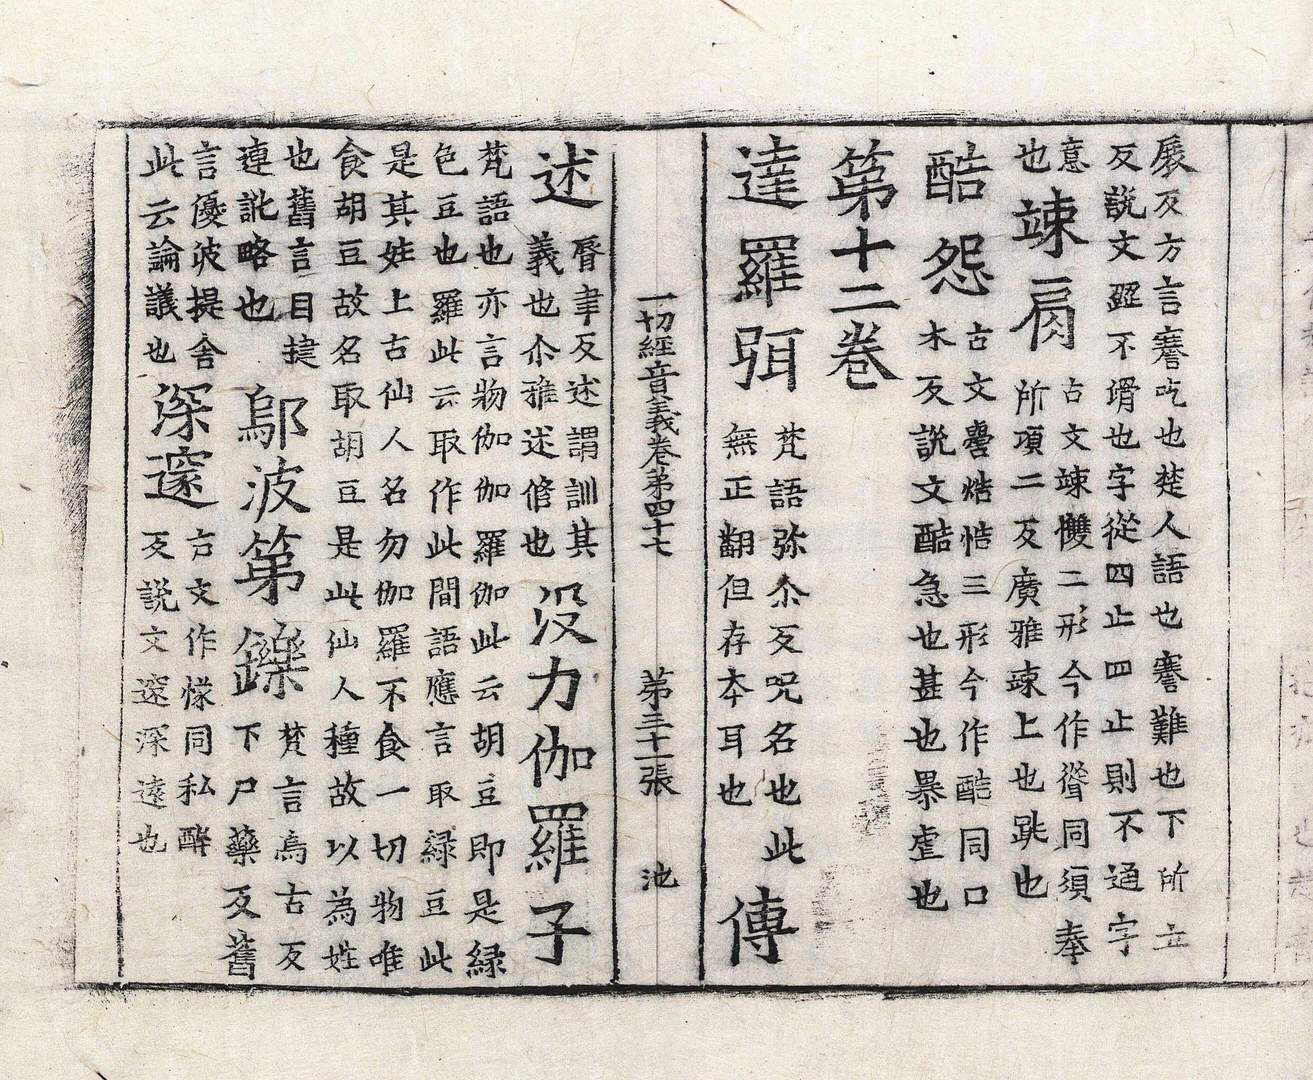 展反方言謇吃也楚人語也謇難也下所立
反說文歰不滑也字從四止四止則不通字
意也
竦肩
古文竦㩳二形今作聳同須奉
所項二反廣雅竦上也跳也
酷怨
古文嚳焅㤍三形今作酷同口
木反說文酷急也甚也暴虐也
第十二卷
達羅弭
梵語弥尒反呪名也此
無正翻但存本耳也
傳
一切經音義卷第四十七 第三十二張 池
述
脣聿反述謂訓其
義也尒雅述脩也
沒力伽羅子
梵語也亦言物伽伽羅伽此云胡豆即是緑
色豆也羅此云取作此間語應言取緑豆此
是其姓上古仙人名勿伽羅不食一切物唯
食胡豆故名取胡豆是此仙人種故以為姓
也舊言目揵
連訛略也
鄔波第鑠
梵言烏古反
下尸藥反舊
言優波提舍
此云論議也
深邃
古文作㒸同私醉
反說文邃深遠也